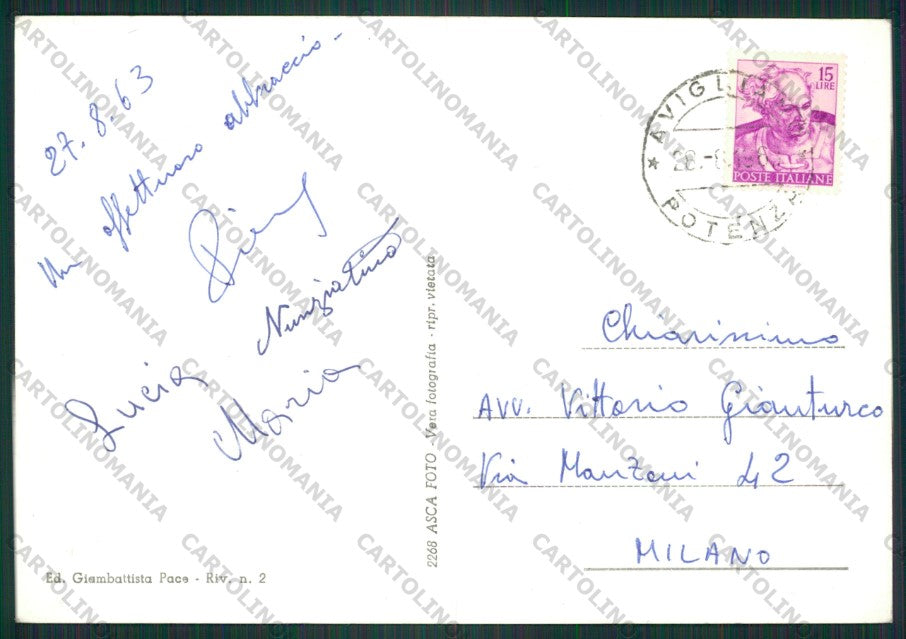 27.8.63
Un affettuoso abbraccio.
Nunziatina
Lucia
Maria
Ed. Giambattista Pace - Riv. n. 2
2268 ASCA FOTO - Vera fotografia - ripr. vietata
15
LIRE
POSTE ITALIANE
AVIGLI
POTENZA
Chiarissimo
Avv. Vittorio Gianturco
Via Manzoni 42
MILANO
CARTOLINOMANIA